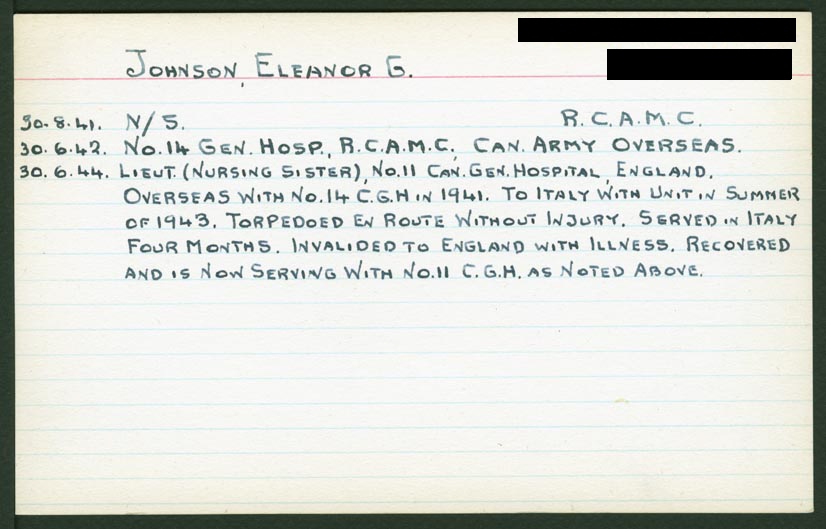 Johnson, Eleanor G.
30.8.41. N/S. R.C.A.M.C.
30.6.42. No.14 Gen. Hosp., R.C.A.M.C., Can. Army Overseas.
30.6.44. Lieut. (Nursing Sister), No.11 Can. Gen. Hospital, England.
Overseas with No.14 C.G.H in 1941. To Italy with Unit in Summer
of 1943. Torpedoed En Route Without Injury. Served in Italy
Four Months. Invalided to England with Illness. Recovered
and is Now Serving With No.11 C.G.H. as Noted Above.